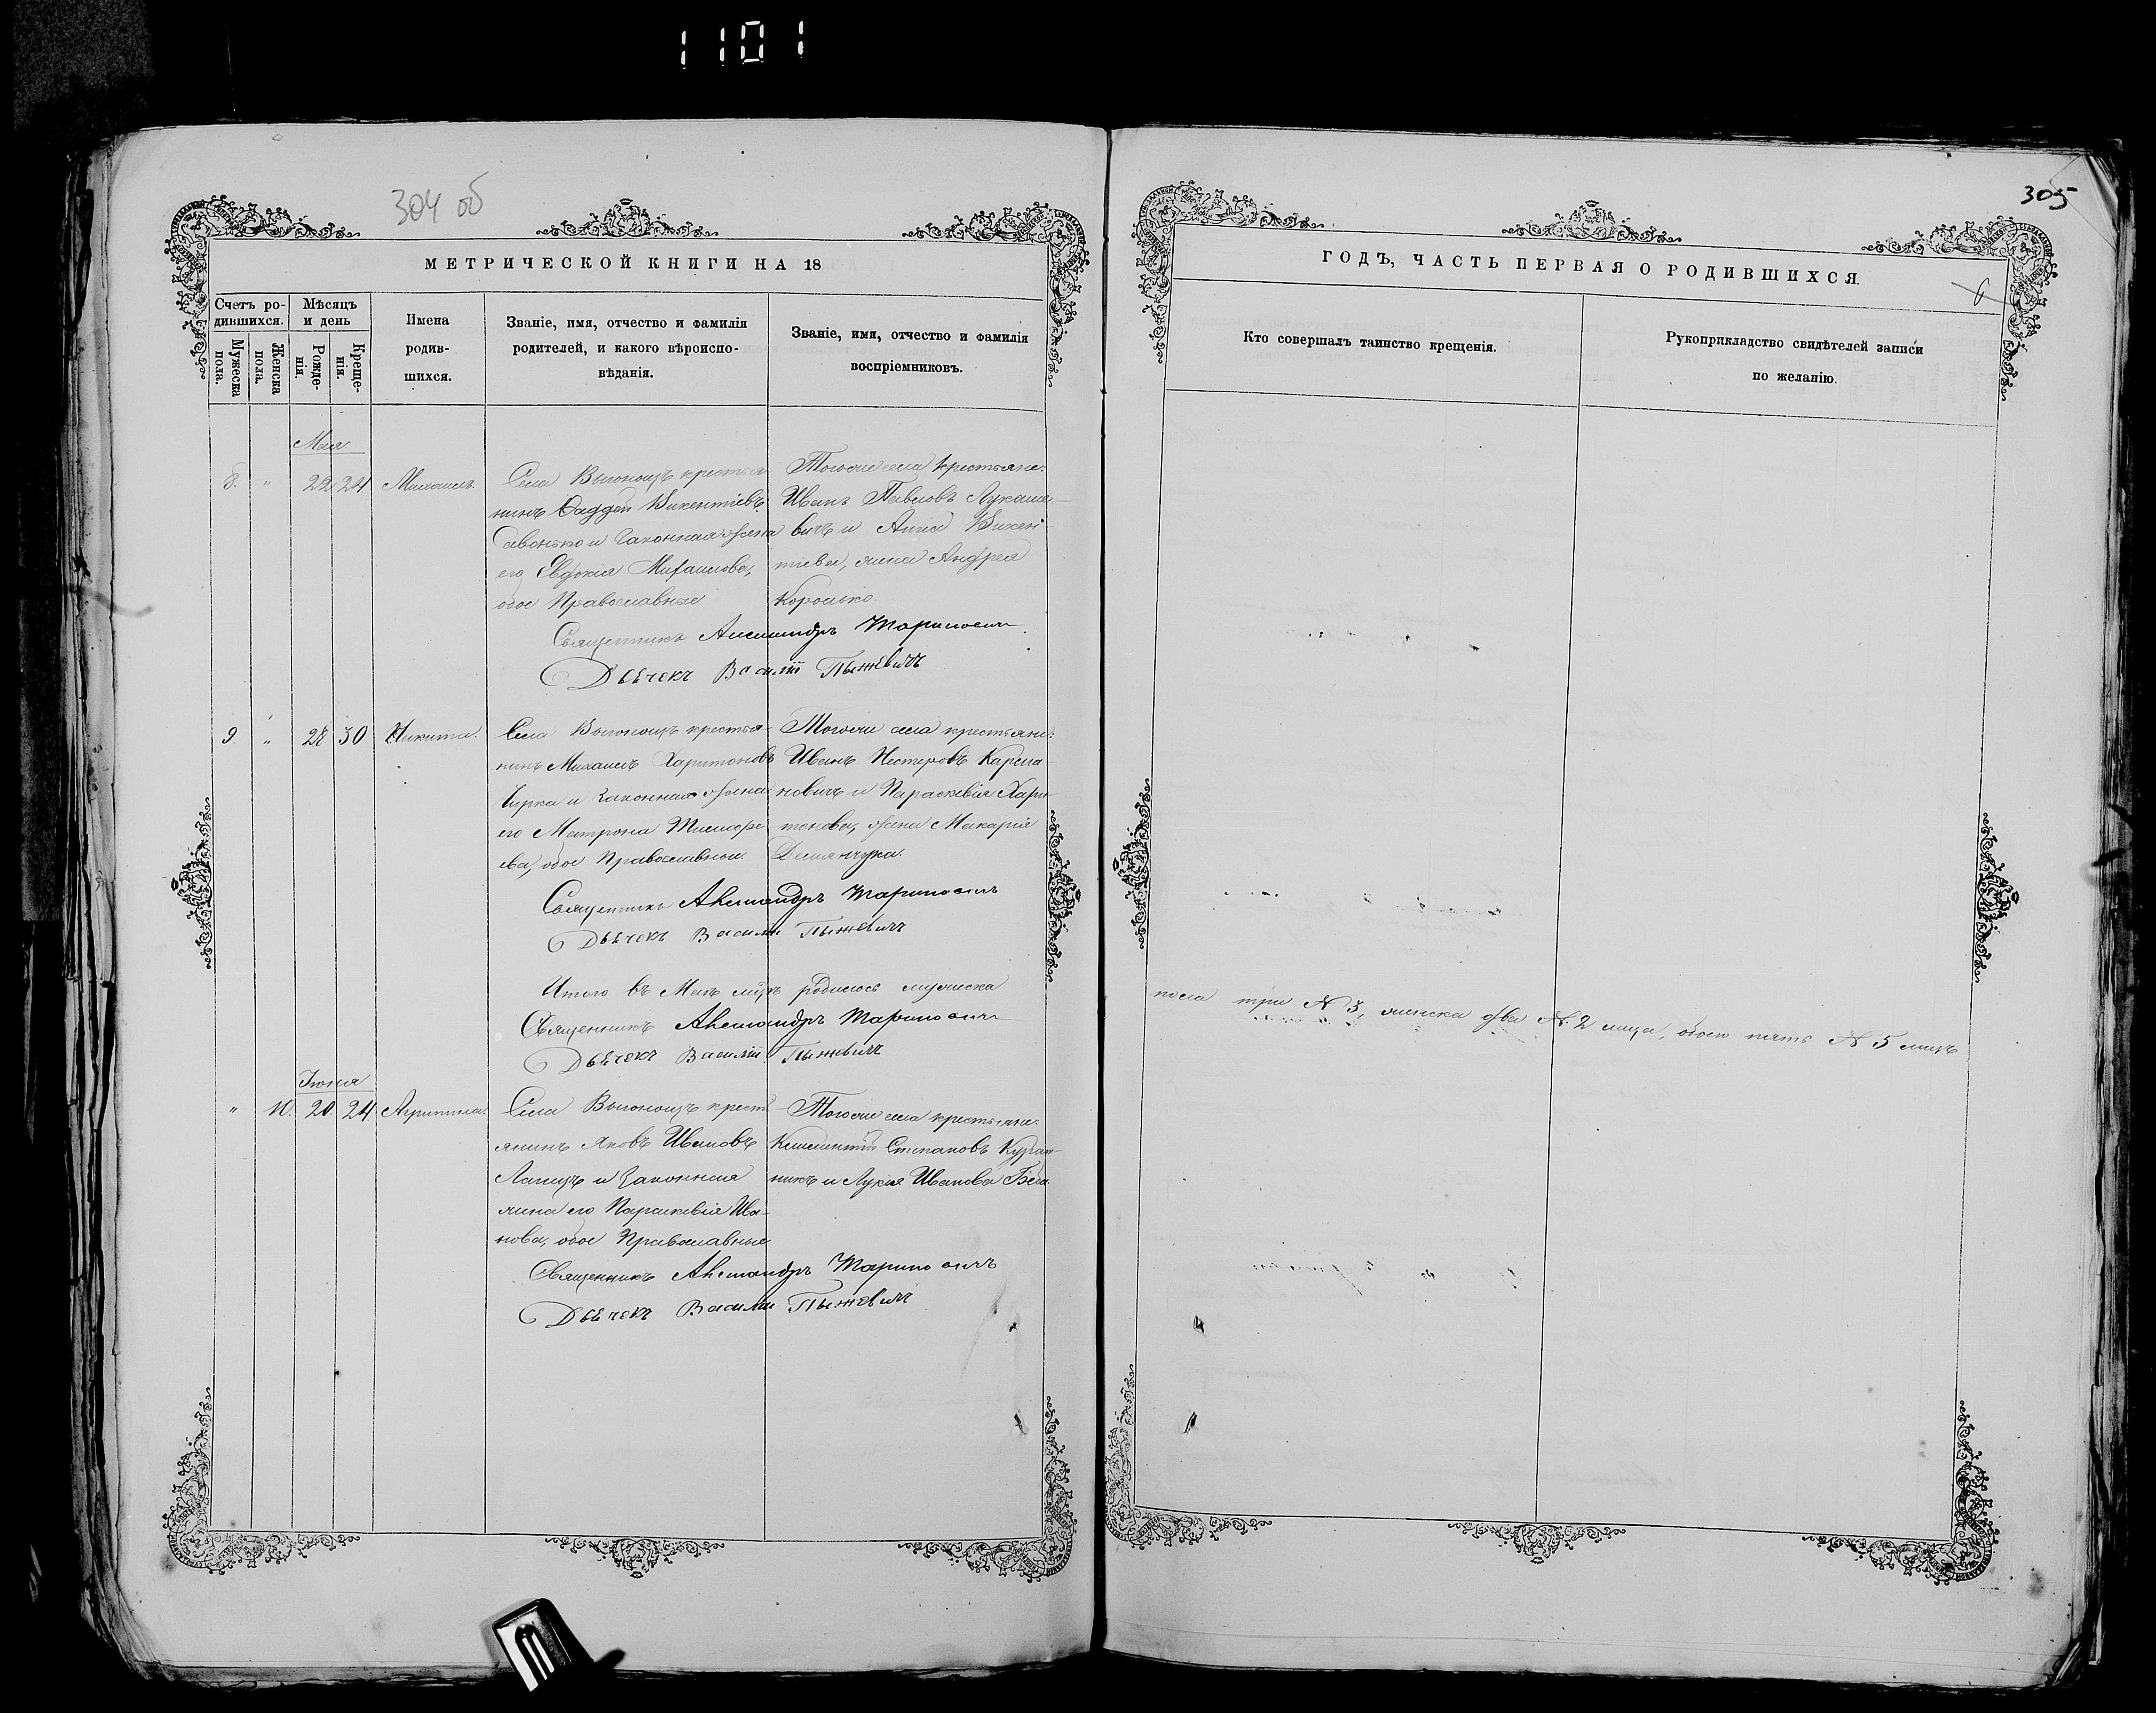 1101
304 об
305
МЕТРИЧЕСКОЙ КНИГИ НА 18
Счетъ ро-
дившихся.
Мужеска
пола.
Женска
пола.
Мѣсяцъ
и день
Рожде-
нія.
Креще-
нія.
Имена
родив-
шихся.
Званіе, имя, отчество и фамилія
родителей, и какого вѣроиспо-
вѣданія.
Званіе, имя, отчество и фамилія
воспріемниковъ.
Мая
8. " 22 24 Михаилъ.
Села Выгонощъ крестья
нинъ Фаддей Викентіевъ
Савонько и законная жена
его Евдокія Михаилова,
обое Православные.
Тогоже села крестьяне:
Иванъ Павловъ Лукаше-
вичъ и Анна Викен-
тіева, жена Андрея
Королько.
Священникъ Александръ
Дьячекъ Василій Пыжевичъ
9 " 28 30 Никита.
Села Выгонощъ крестья-
нинъ Михаилъ Харитоновъ
Чирка и законная жена
его Матрона Тимофе
ева, обое Православные.
Тогоже села крестьяне:
Иванъ Нестеровъ
и Параскевія Хари-
тонова, жена Макарія
Демянчука.
Священникъ Александръ
Дьячекъ Василій Пыжевичъ
Итого въ Маѣ мцѣ родилось мужеска
Священникъ Александръ
Дьячекъ Василій Пыжевичъ
Іюня
" 10. 20. 24 Агрипина
Села Выгонощъ крест
янинъ Яковъ Ивановъ
и законная
жена его Параскевія Ива-
нова, обое Православные
Тогоже села крестьяне:
Степановъ
и Лукія Иванова
Священникъ Александръ
Дьячекъ Василій Пыжевичъ
ГОДЪ, ЧАСТЬ ПЕРВАЯ О РОДИВШИХСЯ.
6
Кто совершалъ таинство крещенія.
Рукоприкладство свидѣтелей записи
по желанію.
пола три № 3, женска два № 2 лица, обоего пять № 5 лицъ